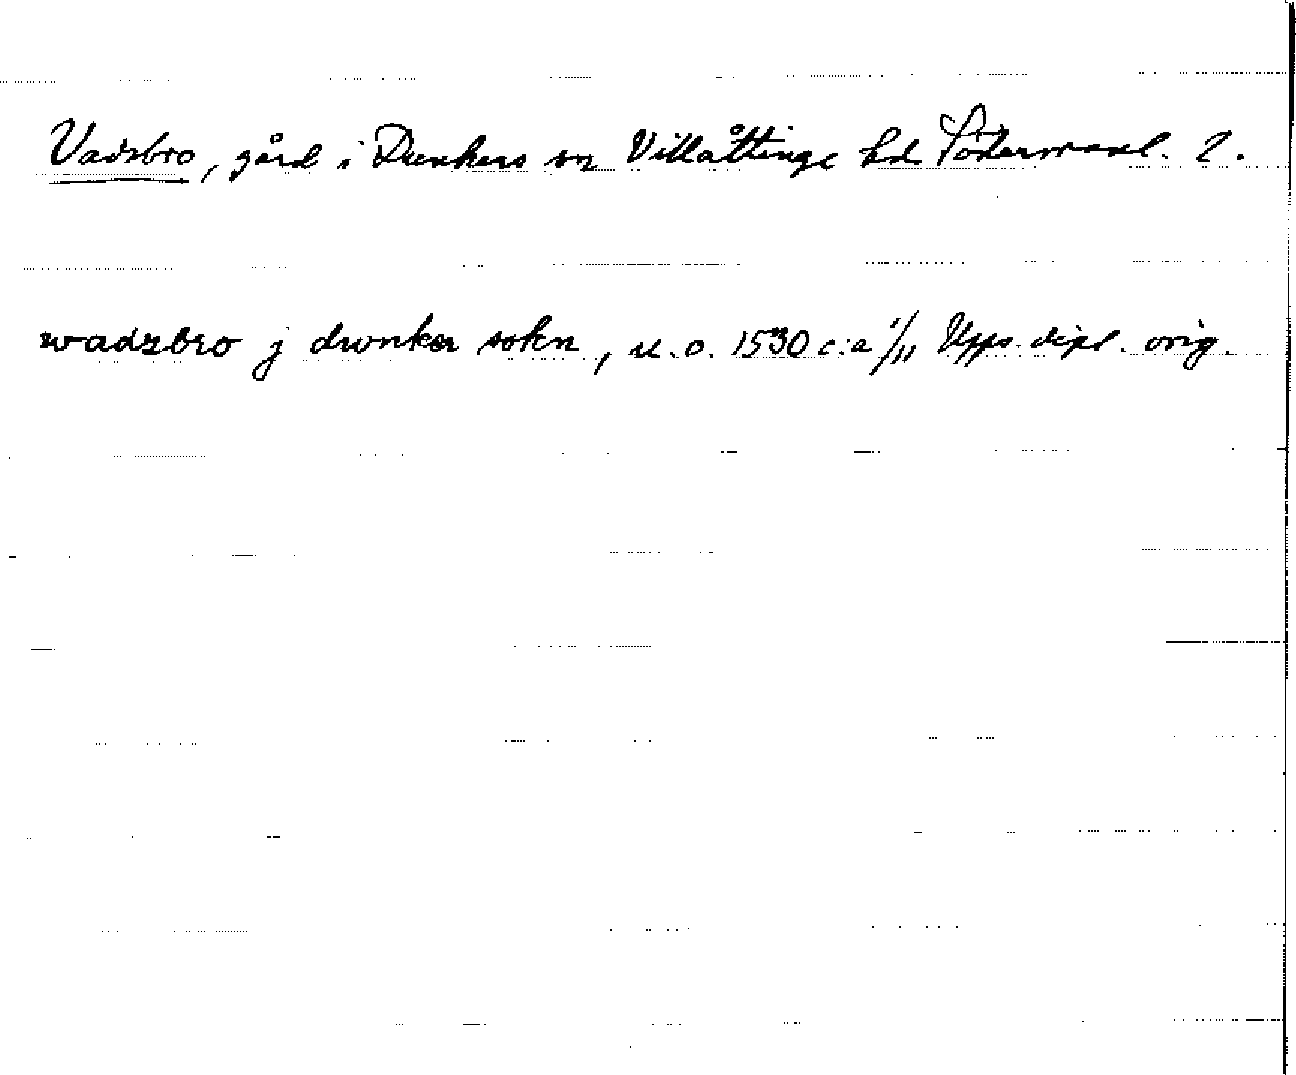 Vadsbro, gård i Dunkers sn Villåttinge hd Södermanl. l.
wadzbro j dwnker sokn, u.o. 1530 c:a 1/11 Upps. dipl. orig.